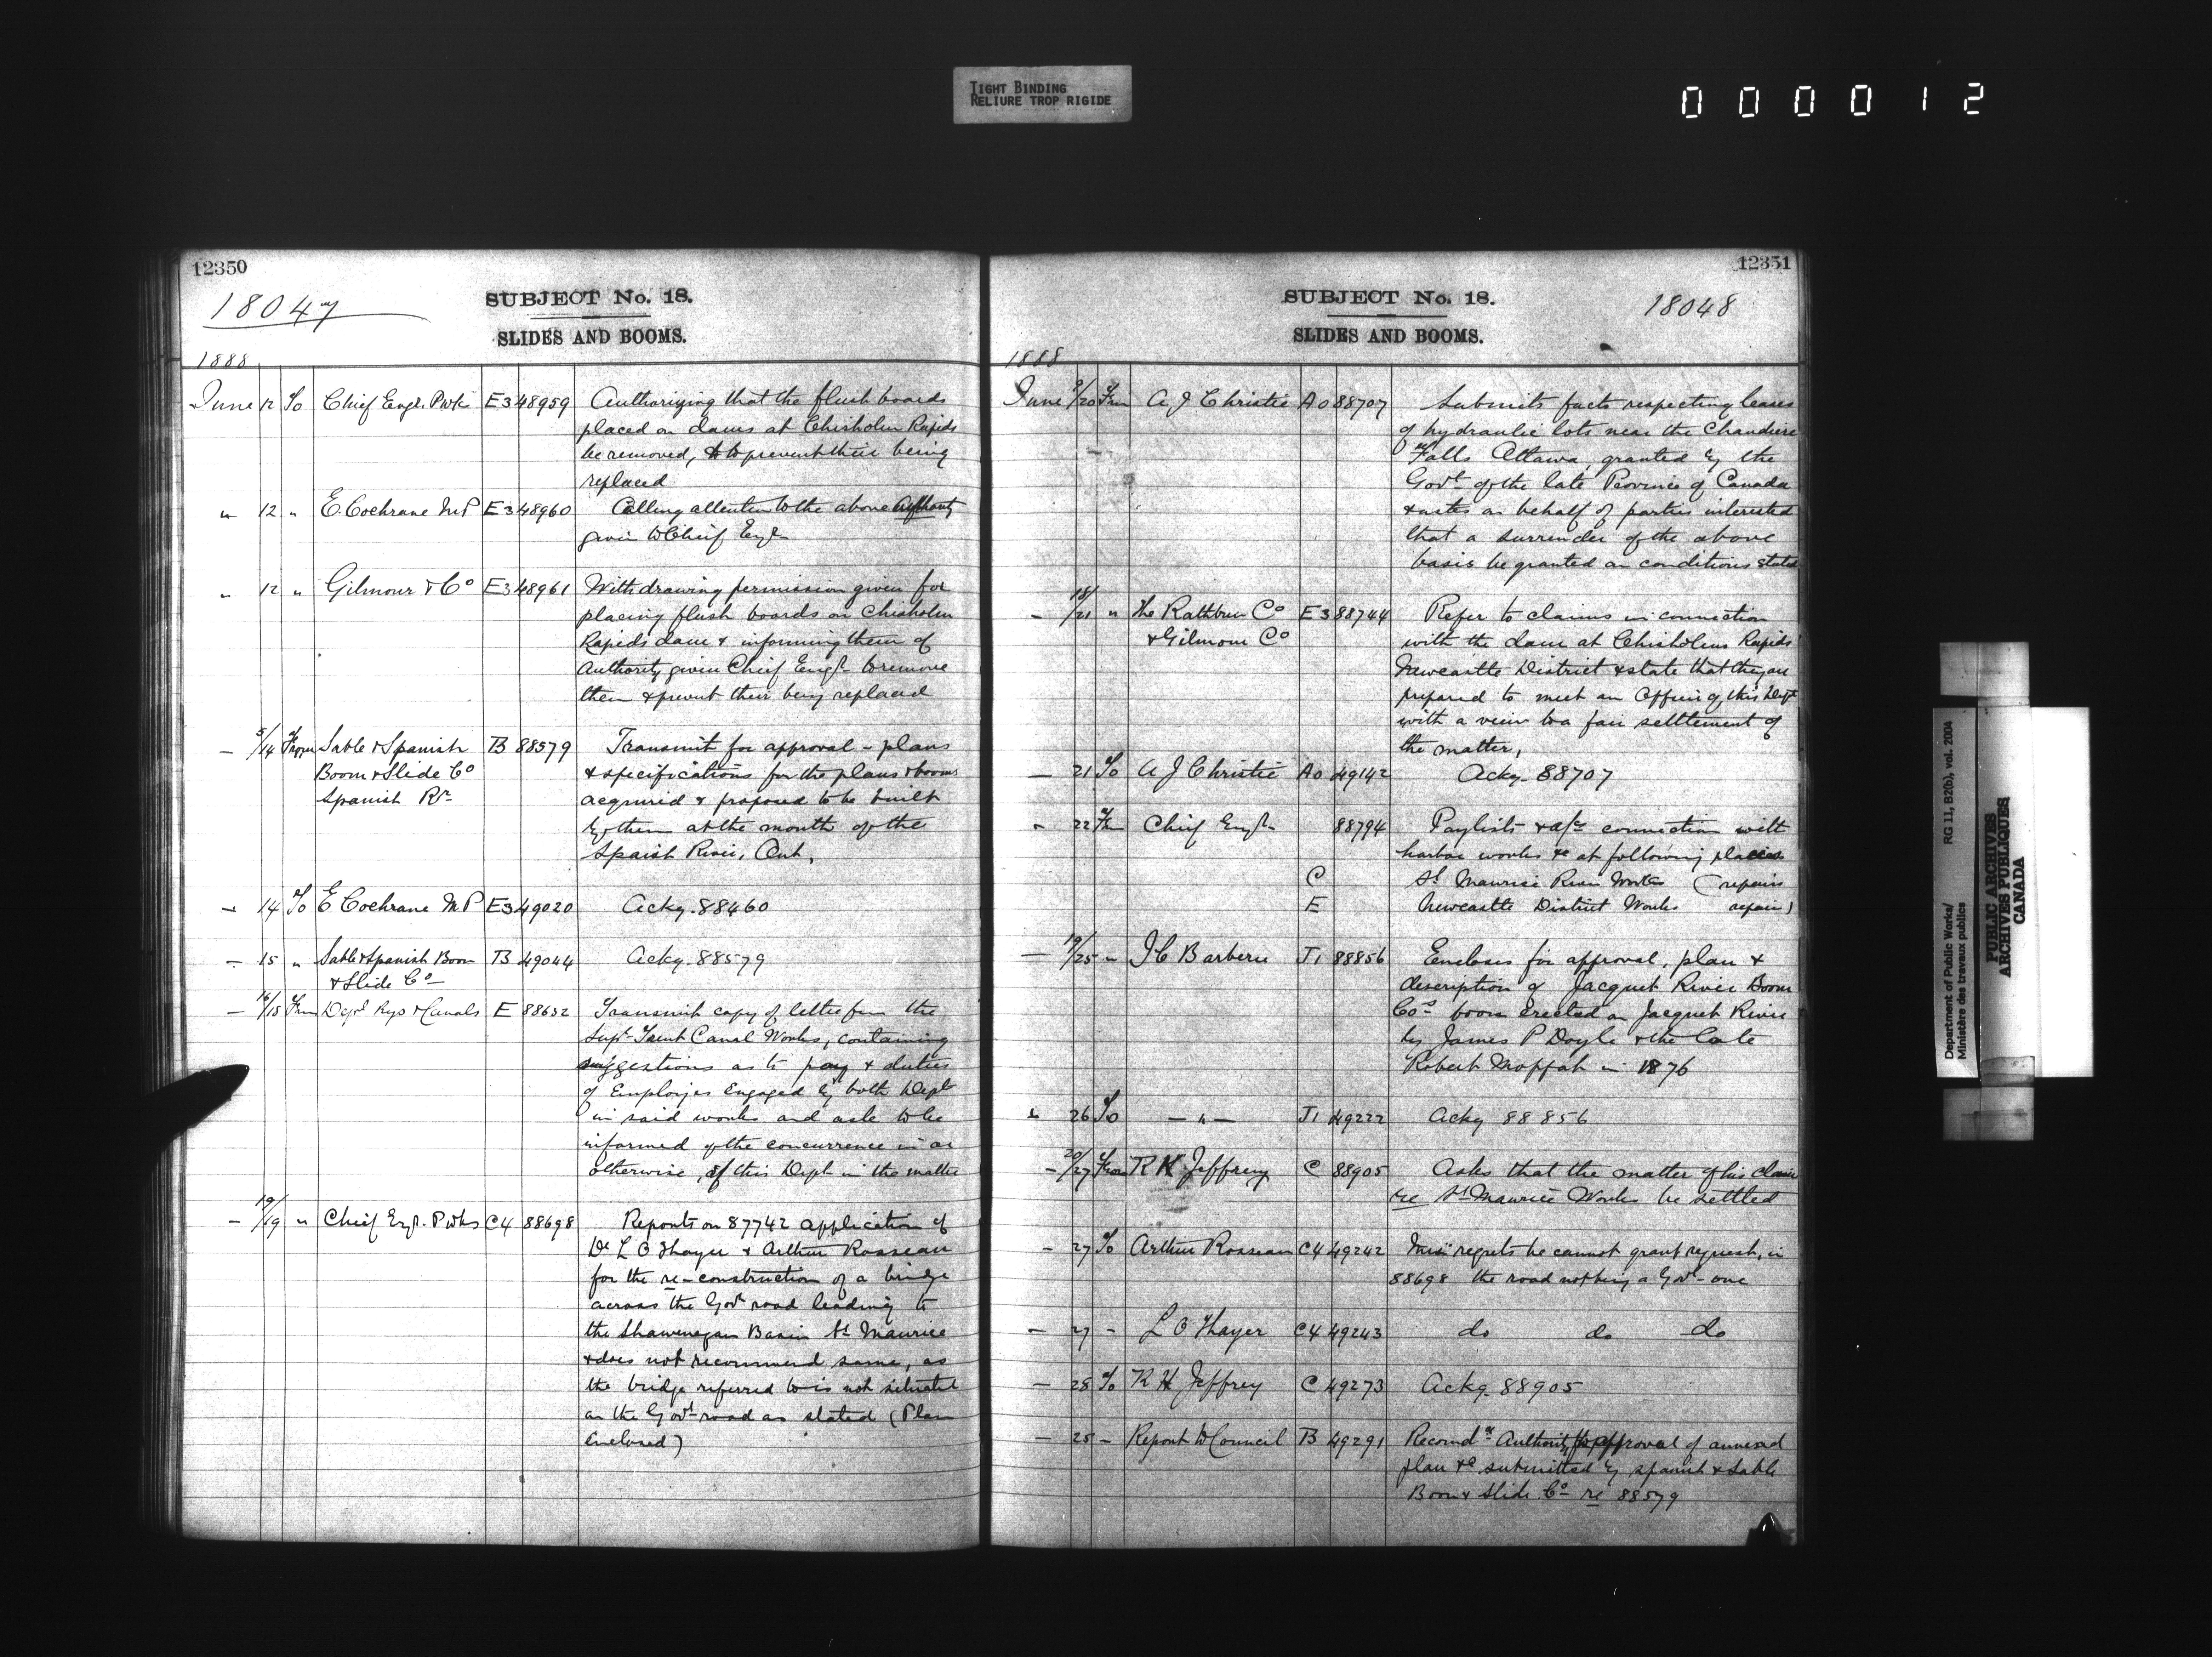 TIGHT BINDING
RELIURE TROP RIGIDE
0 0 0 0 1 2
12350
18047
SUBJECT No. 18.
SLIDES AND BOOMS.
1888
June 12 To Chief Engr. P wks E3 48959 Authorizing that the flush boards
placed on dams at Chisholm Rapids
be removed, & to prevent their being
replaced
" 12 " E. Cochrane M P E3 48960 Calling attention to the above authority
given to Chief Engr
" 12 " Gilmour & Co E3 48961 Withdrawing permission given for
placing flush boards on Chisholm
Rapids dam & informing them of
authority given Chief Engr to remove
them & prevent their being replaced
— 5/14 From Sable & Spanish B 88579 Transmit for approval - plans
Boom & Slide Co & specifications for the plans & booms
Spanish Rr acquired & proposed to be built
by them at the mouth of the
Spanish River, Ont,
— 14 To E Cochrane M P E3 49020 Ackg. 88460
— 15 " Sable & Spanish Boom B 49044 Ackg. 88579
& Slide Co
— 16/18 From Dept Rys & Canals E 88632 Transmit copy of letter from the
Supt Trent Canal Works, containing
suggestions as to pay & duties
of Employes engaged by both Depts
in said works and ask to be
informed of the concurrence in or
otherwise, of this Dept in the matter
— 19/19 " Chief Engr. P Wks C4 88698 Reports on 87742 application of
Dr L O Thayer & Arthur Rosseau
for the re-construction of a bridge
across the Govt road leading to
the Shawenegan Basin St Maurice
& does not recommend same, as
the bridge referred to is not situated
on the Govt road as stated (Plan
Enclosed)
12351
SUBJECT No. 18.
18048
SLIDES AND BOOMS.
1888
June /20 From A J Christie A0 88707 Submits facts respecting leases
of hydraulic lots near the Chaudiere
Falls Ottawa, granted by the
Govt of the late Province of Canada
& asks on behalf of parties interested
that a surrender of the above
basis be granted on conditions stated
— 18/21 " The Rathbun Co E3 88744 Refer to claims in connection
& Gilmour Co with the dam at Chisholms Rapids
Newcastle District & state that they are
prepared to meet an Officer of this Dept
with a view to a fair settlement of
the matter,
— 21 To A J Christie A0 49142 Ackg. 88707
" 22 From Chief Engr 88794 Paylists & a/cs connection with
harbor works &c at following places
C St Maurice River Works (repairs
E Newcastle District Works repairs)
— 19/25 " J C Barberie J1 88856 Encloses for approval, plan &
description of Jacquet River Boom
Cos boom erected on Jacquet River
by James P Doyle & the late
Robert Moffat in 1876
" 26 To — " — J1 49222 Ackg 88856
— 20/27 From R H Jeffrey C 88905 Asks that the matter of his claim
re St Maurice Works be settled
— 27 To Arthur Rosseau C4 49242 Minr regrets he cannot grant request, in
88698 the road not being a Govt one
— 27 - L O Thayer C4 49243 do do do
— 28 To R H Jeffrey C 49273 Ackg. 88905
— 25 - Report to Council B 49291 Recomdg Authority for approval of annexed
plan &c submitted by Spanish & Sable
Boom & Slide Co re 88579
Department of Public Works/
Ministère des travaux publics
RG 11, B2(b), vol. 2004
PUBLIC ARCHIVES
ARCHIVES PUBLIQUES
CANADA